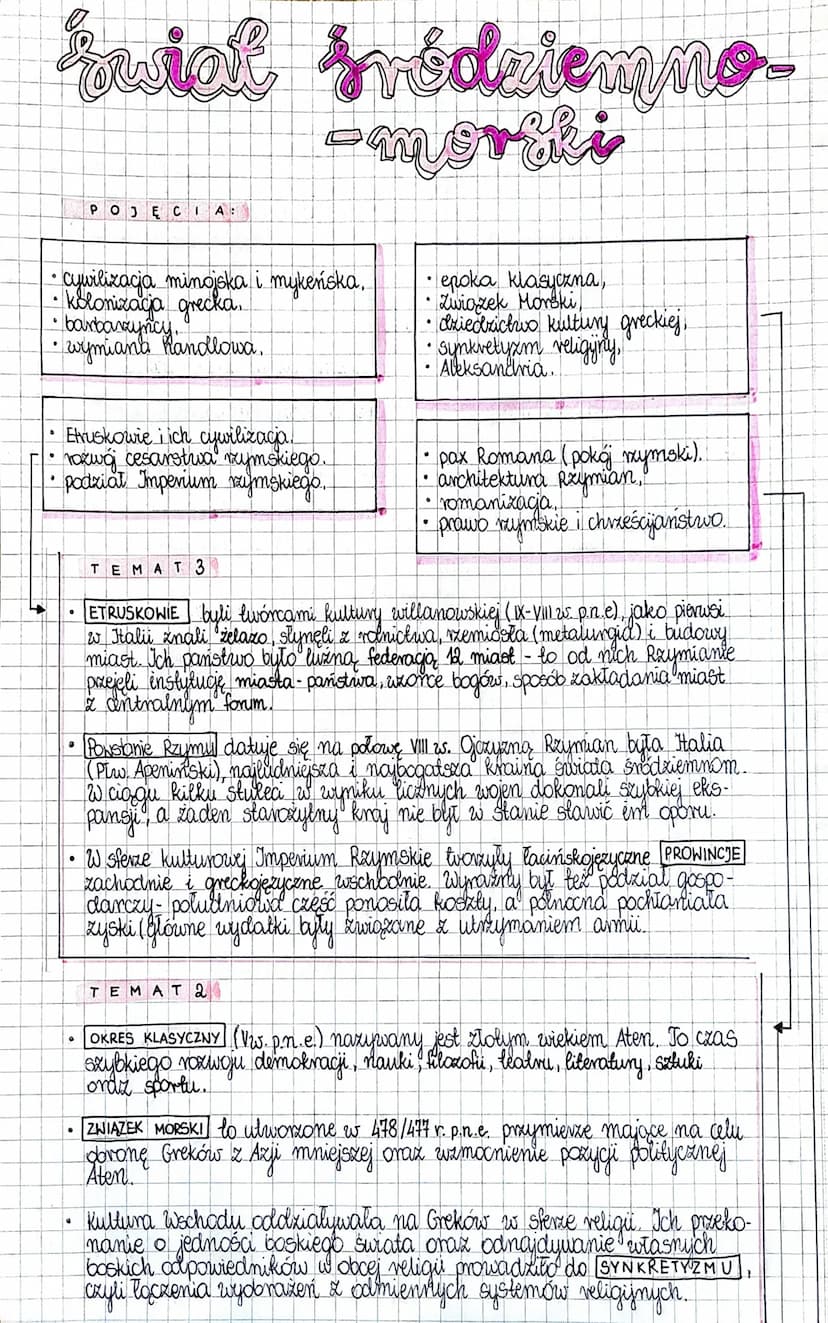 świat śródziemno-
-morski
POJĘCIA:
• cywilizacja minojska i mykeńska,
• kolonizacja grecka,
• barbarzyńcy,
• wymiana handlowa,
• epoka klasyczna,
• Związek Morski,
• dziedzictwo kultury greckiej,
• synkretyzm religijny,
• Aleksandria.
• Etruskowie i ich cywilizacja.
• rozwój cesarstwa rzymskiego.
• podział Imperium rzymskiego.
• pax Romana (pokój rzymski).
• architektura Rzymian,
• romanizacja,
• prawo rzymskie i chrześcijaństwo.
TEMAT 3
• ETRUSKOWIE byli twórcami kultury willanowskiej (IX-VIII w. p.n.e), jako pierwsi
w Italii znali żelazo, słynęli z rolnictwa, rzemiosła (metalurgia) i budowy
miast. Ich państwo było luźną federacją 12 miast - to od nich Rzymianie
przejęli instytucję miasta-państwa, wzorce bogów, sposób zakładania miast
z centralnym forum.
• Powstanie Rzymu datuje się na połowę VIII w. Ojczyzną Rzymian była Italia
(Płw. Apeniński), najludniejsza i najbogatsza kraina świata śródziemnom.
W ciągu kilku stuleci w wyniku licznych wojen dokonali szybkiej eks-
pansji, a żaden starożytny kraj nie był w stanie stawić im oporu.
• W sferze kulturowej Imperium Rzymskie tworzyły łacińskojęzyczne PROWINCJE
zachodnie i greckojęzyczne wschodnie. Wyraźny był też podział gospo-
darczy- południowa część ponosiła koszty, a północna pochłaniała
zyski (główne wydatki były związane z utrzymaniem armii.
TEMAT 2
• OKRES KLASYCZNY (V w. p.n.e.) nazywany jest złotym wiekiem Aten. To czas
szybkiego rozwoju demokracji, nauki, filozofii, teatru, literatury, sztuki
oraz sportu.
• ZWIĄZEK MORSKI to utworzone w 478/477 r. p.n.e. przymierze mające na celu
obronę Greków z Azji mniejszej oraz wzmocnienie pozycji politycznej
Aten.
• Kultura Wschodu oddziaływała na Greków w sferze religii. Ich przeko-
nanie o jedności boskiego świata oraz odnajdywanie własnych
boskich odpowiedników w obcej religii prowadziło do SYNKRETYZMU,
czyli łączenia wyobrażeń z odmiennych systemów religijnych.